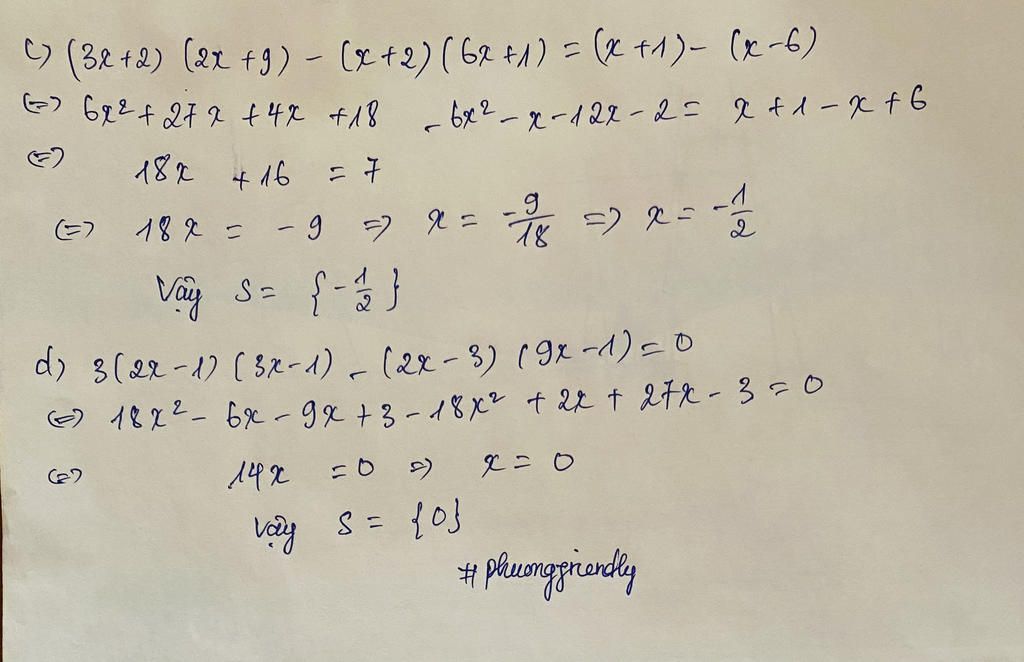 c) (3x+2) (2x+9) - (x+2) (6x+1) = (x+1) - (x-6)
(=) 6x² + 27x + 4x + 18 - 6x² - x - 12x - 2 = x + 1 - x + 6
(=) 18x + 16 = 7
(=) 18x = -9 => x = -9/18 => x = -1/2
Vậy S = {-1/2}
d) 3(2x-1) (3x-1) - (2x-3) (9x-1) = 0
(=) 18x² - 6x - 9x + 3 - 18x² + 2x + 27x - 3 = 0
(=) 14x = 0 => x = 0
Vậy S = {0}
# phuongfriendly